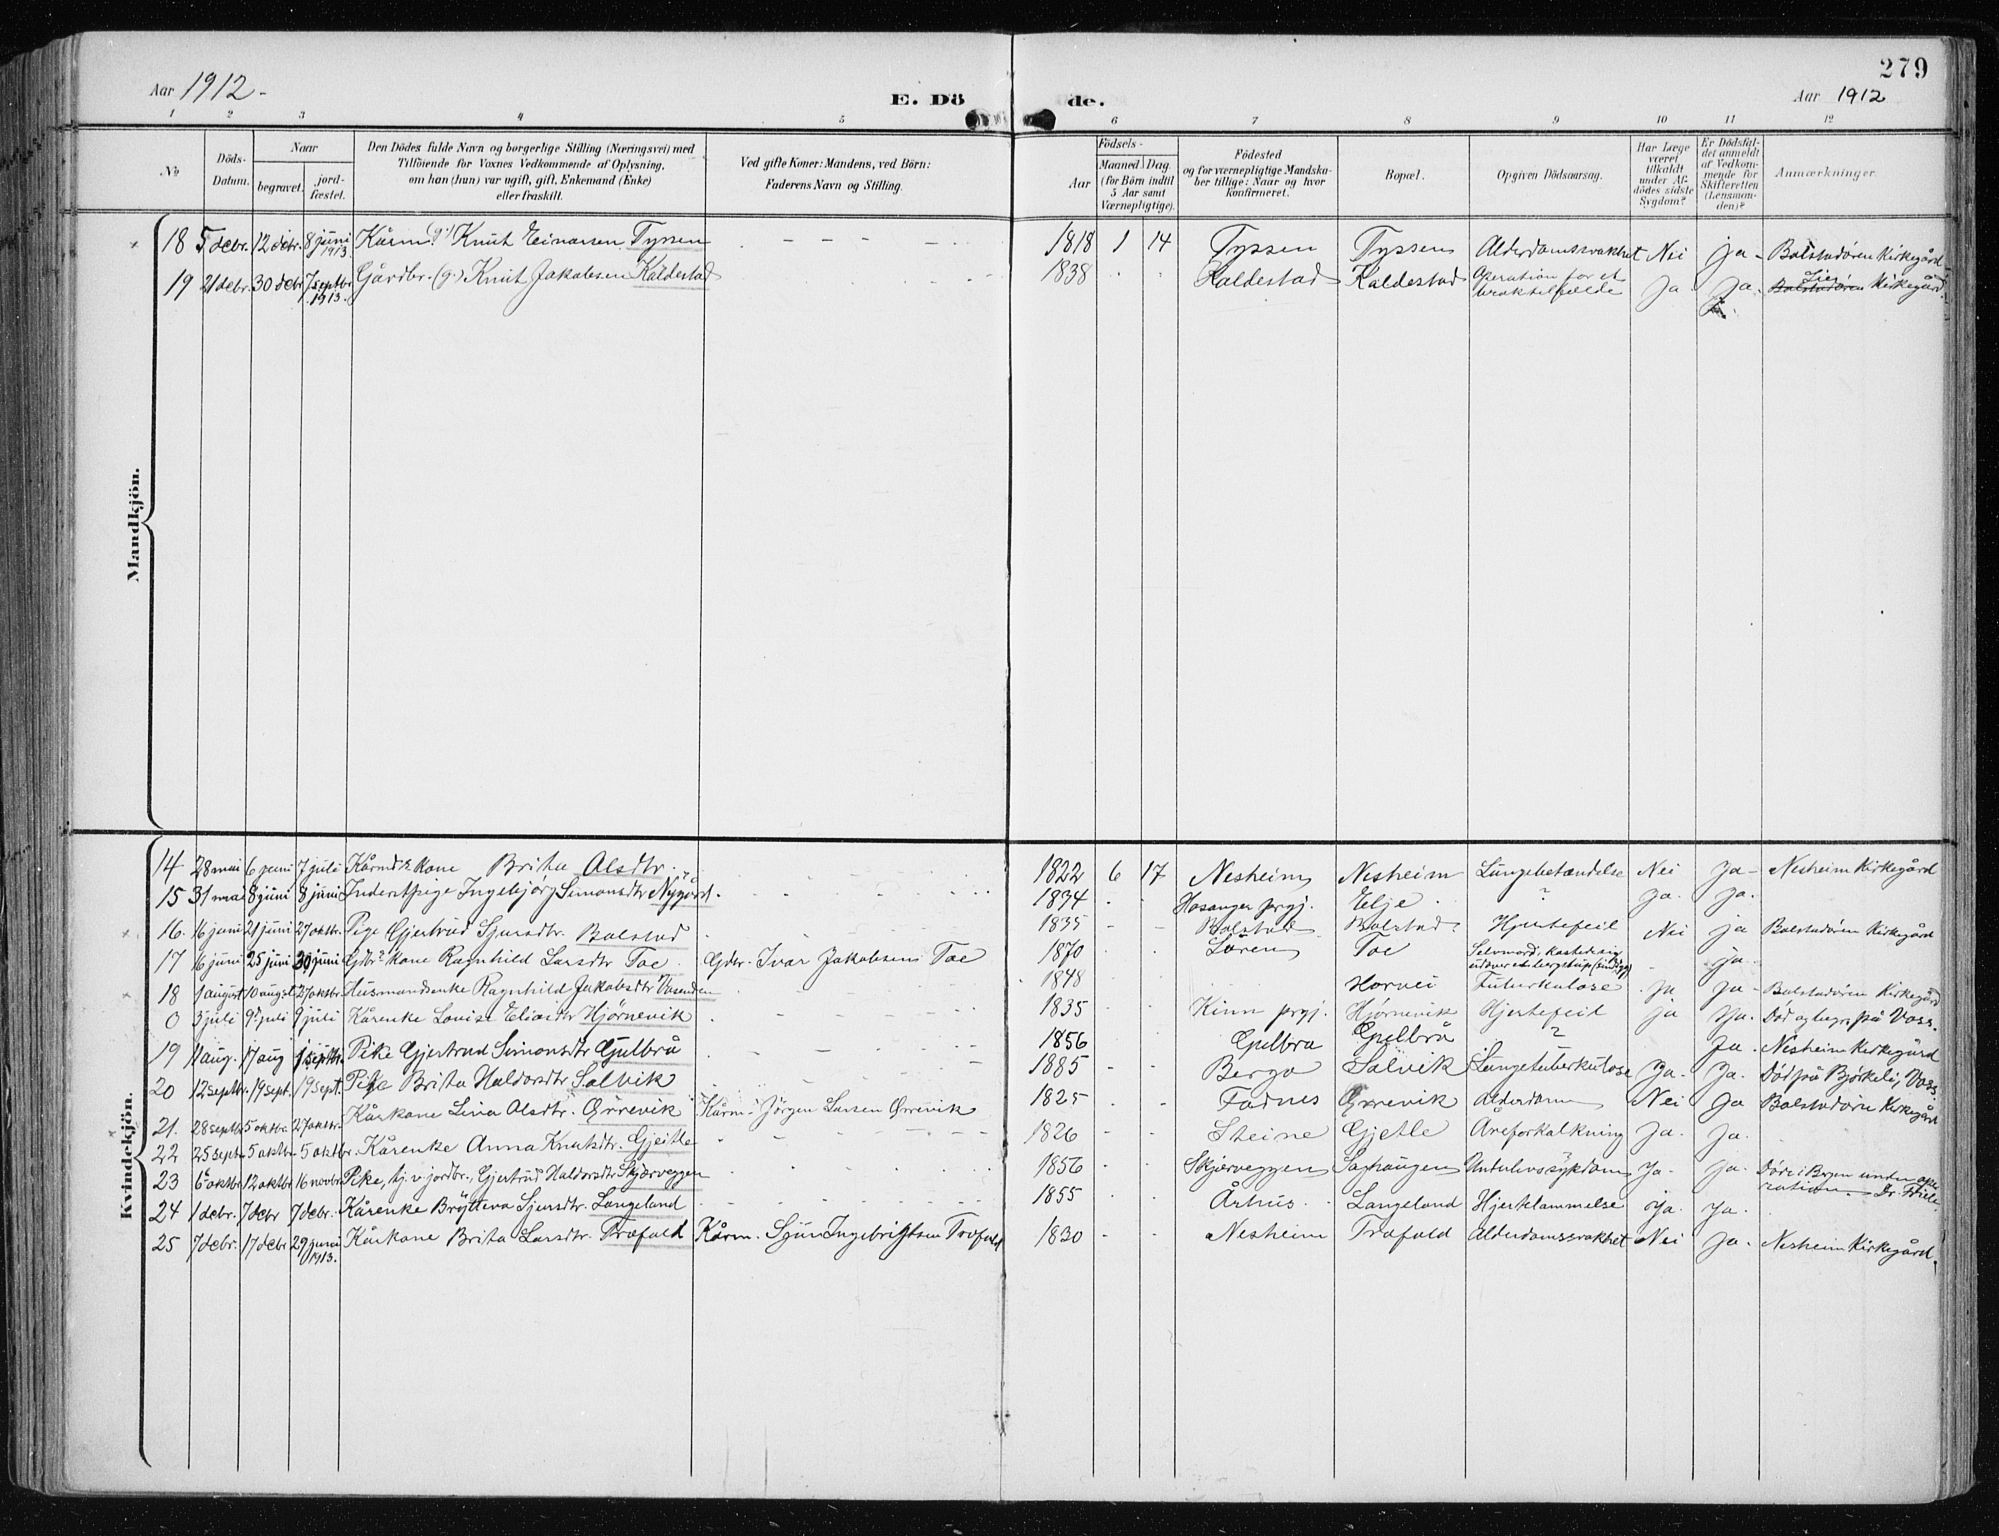 279
Aar 1912.-
E. Dö
de.
Aar 1912
1 2 3 4 5 6 7 8 9 10 11 12
No
Döds-Datum.
Naar
begravet.
jordfæstet.
Den Dödes fulde Navn og borgerlige Stilling (Næringsvei) med
Tilföiende for Voxnes Vedkommende af Oplysning,
om han (hun) var ugift, gift, Enkemand (Enke)
eller fraskilt.
Ved gifte Koner: Mandens, ved Börn:
Faderens Navn og Stilling.
Aar
Födsels-
Maaned Dag
(for Börn indtil
5 Aar samt
Værnepligtige).
Födested
og for værnepligtige Mandskaber tillige: Naar og hvor
konfirmeret.
Bopæl.
Opgiven Dödsaarsag.
Har Læge været tilkaldt under Afdödes sidste Sygdom?
Er Dödsfaldet anmeldt af Vedkommende for Skifteretten (Lensmanden)?
Anmærkninger.
Mandkjön.
18 5 debr. 12 debr. 8 juni 1913. Kårm. (g.) Knut Einarsen Tyssen - - - - 1818 1 14 Tyssen Tyssen Alderdomssvakhet Nei Ja - Bolstadøren Kirkegård
19 21 debr. 30 debr 7 septbr 1913. Gårdbr. (g.) Knut Jakobsen Kaldestad 1838 " " Kaldestad Kaldestad Operation for et braktilfælde Ja Ja. Bolstadøren Kirkegård.
Kvindekjön.
14 28 mai 6 juni 7 juli Kårmds kone Brita Olsdtr. 1822 6 17 Nesheim Nesheim Lungebetændelse Nei Ja - Nesheim Kirkegård
15 31 mai 8 juni 8 juni Inderstpige Ingebjörg Simonsdtr Nygård. 1834 Hosanger prgj. Elje ? Ja. Ja.
16. 16 juni 21 juni 27 oktbr. Pige Gjertrud Sjursdtr. Bolstad 1835 - - Bolstad Bolstad Hjertefeil Nei Ja Bolstadøren Kirkegård
17 16 juni 25 juni 30 juni Gdbr. kone Ragnhild Larsdtr Toe. Gdbr. Ivar Jakobsens Toe 1870 Løren Toe Selvmord, kastet sig Ja.
18 1 august 10 augst 27 oktbr Husmandsenke Ragnhild Jakobsdtr Vasenden 1848 Horvei Tuberkulose Ja Ja - Bolstadøren Kirkegård
0 3 juli 9 juli 9 juli Kårenke Lovise Eliasdtr Hjörnevik 1835 Kinn prgj. Hjørnevik Hjertefeil Ja Ja. Död og begr. på Voss.
19 11 aug. 17 aug 1 septbr. Pike Gjertrud Simonsdtr Gulbrå 1856 Gulbra Gulbrå ? Ja. Nesheim Kirkegård
20 12 septbr 19 sept. 19 sept. Pike Brita Haldorsdtr Solvik 1885 Bergo Solvik Lungetuberkulose Ja. Ja. Död på Björkeli, Voss.
21. 28 septbr 5 oktbr. 27 oktbr. Kårkone Lina Olsdtr. Ørrevik Kårm. Jörgen Larsen Ørrevik 1825 Fadnes Ørrevik Alderdom Nei Ja Bolstadøren Kirkegård
22 25 septr. 5 oktbr. 5 oktbr. Kårenke Anna Knutsdtr. Gjeitle 1826 Steine Gjetle Åreforkalkning Ja. Ja.
23 6 oktbr 12 oktbr 16 novbr Pike, tj. v. jordbr., Gjertrud Haldorsdtr Skjærveggen 1856 Skjerveggen Underlivssykdom Ja. Ja. Döde i Bergen under operation.
24 1 debr. 7 debr 7 debr. Kårenke Brytteva Sjursdtr. Langeland 1855 Århus. Langeland Hjertelammelse Ja. Ja.
25 7 debr. 17 debr 29 juni 1913. Kårkone Brita Larsdtr. Trefald Kårm. Sjur Ingebrigtsen Trefald 1830 Nesheim Trofald Alderdomssvakhet Nei Ja. Nesheim Kirkegård.